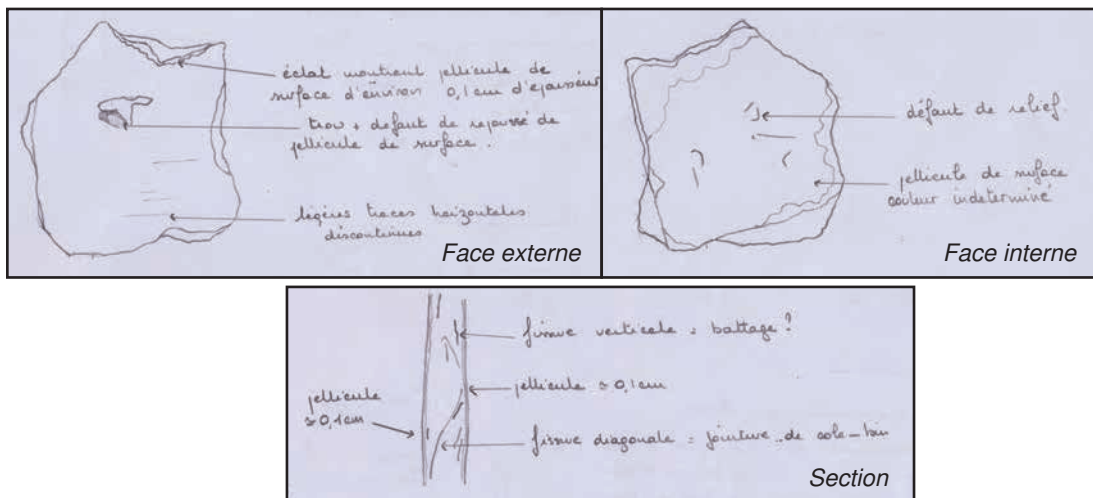 éclat montrant pellicule de
surface d'environ 0,1cm d'épaisseur
trou + défaut de repoussé de
pellicule de surface.
légères traces horizontales
discontinues
Face externe
défaut de relief.
pellicule de surface
couleur indéterminé
Face interne
fissure verticale = battage ?
pellicule ≈ 0,1cm
pellicule
≈ 0,1cm
fissure diagonale = jointure de
Section